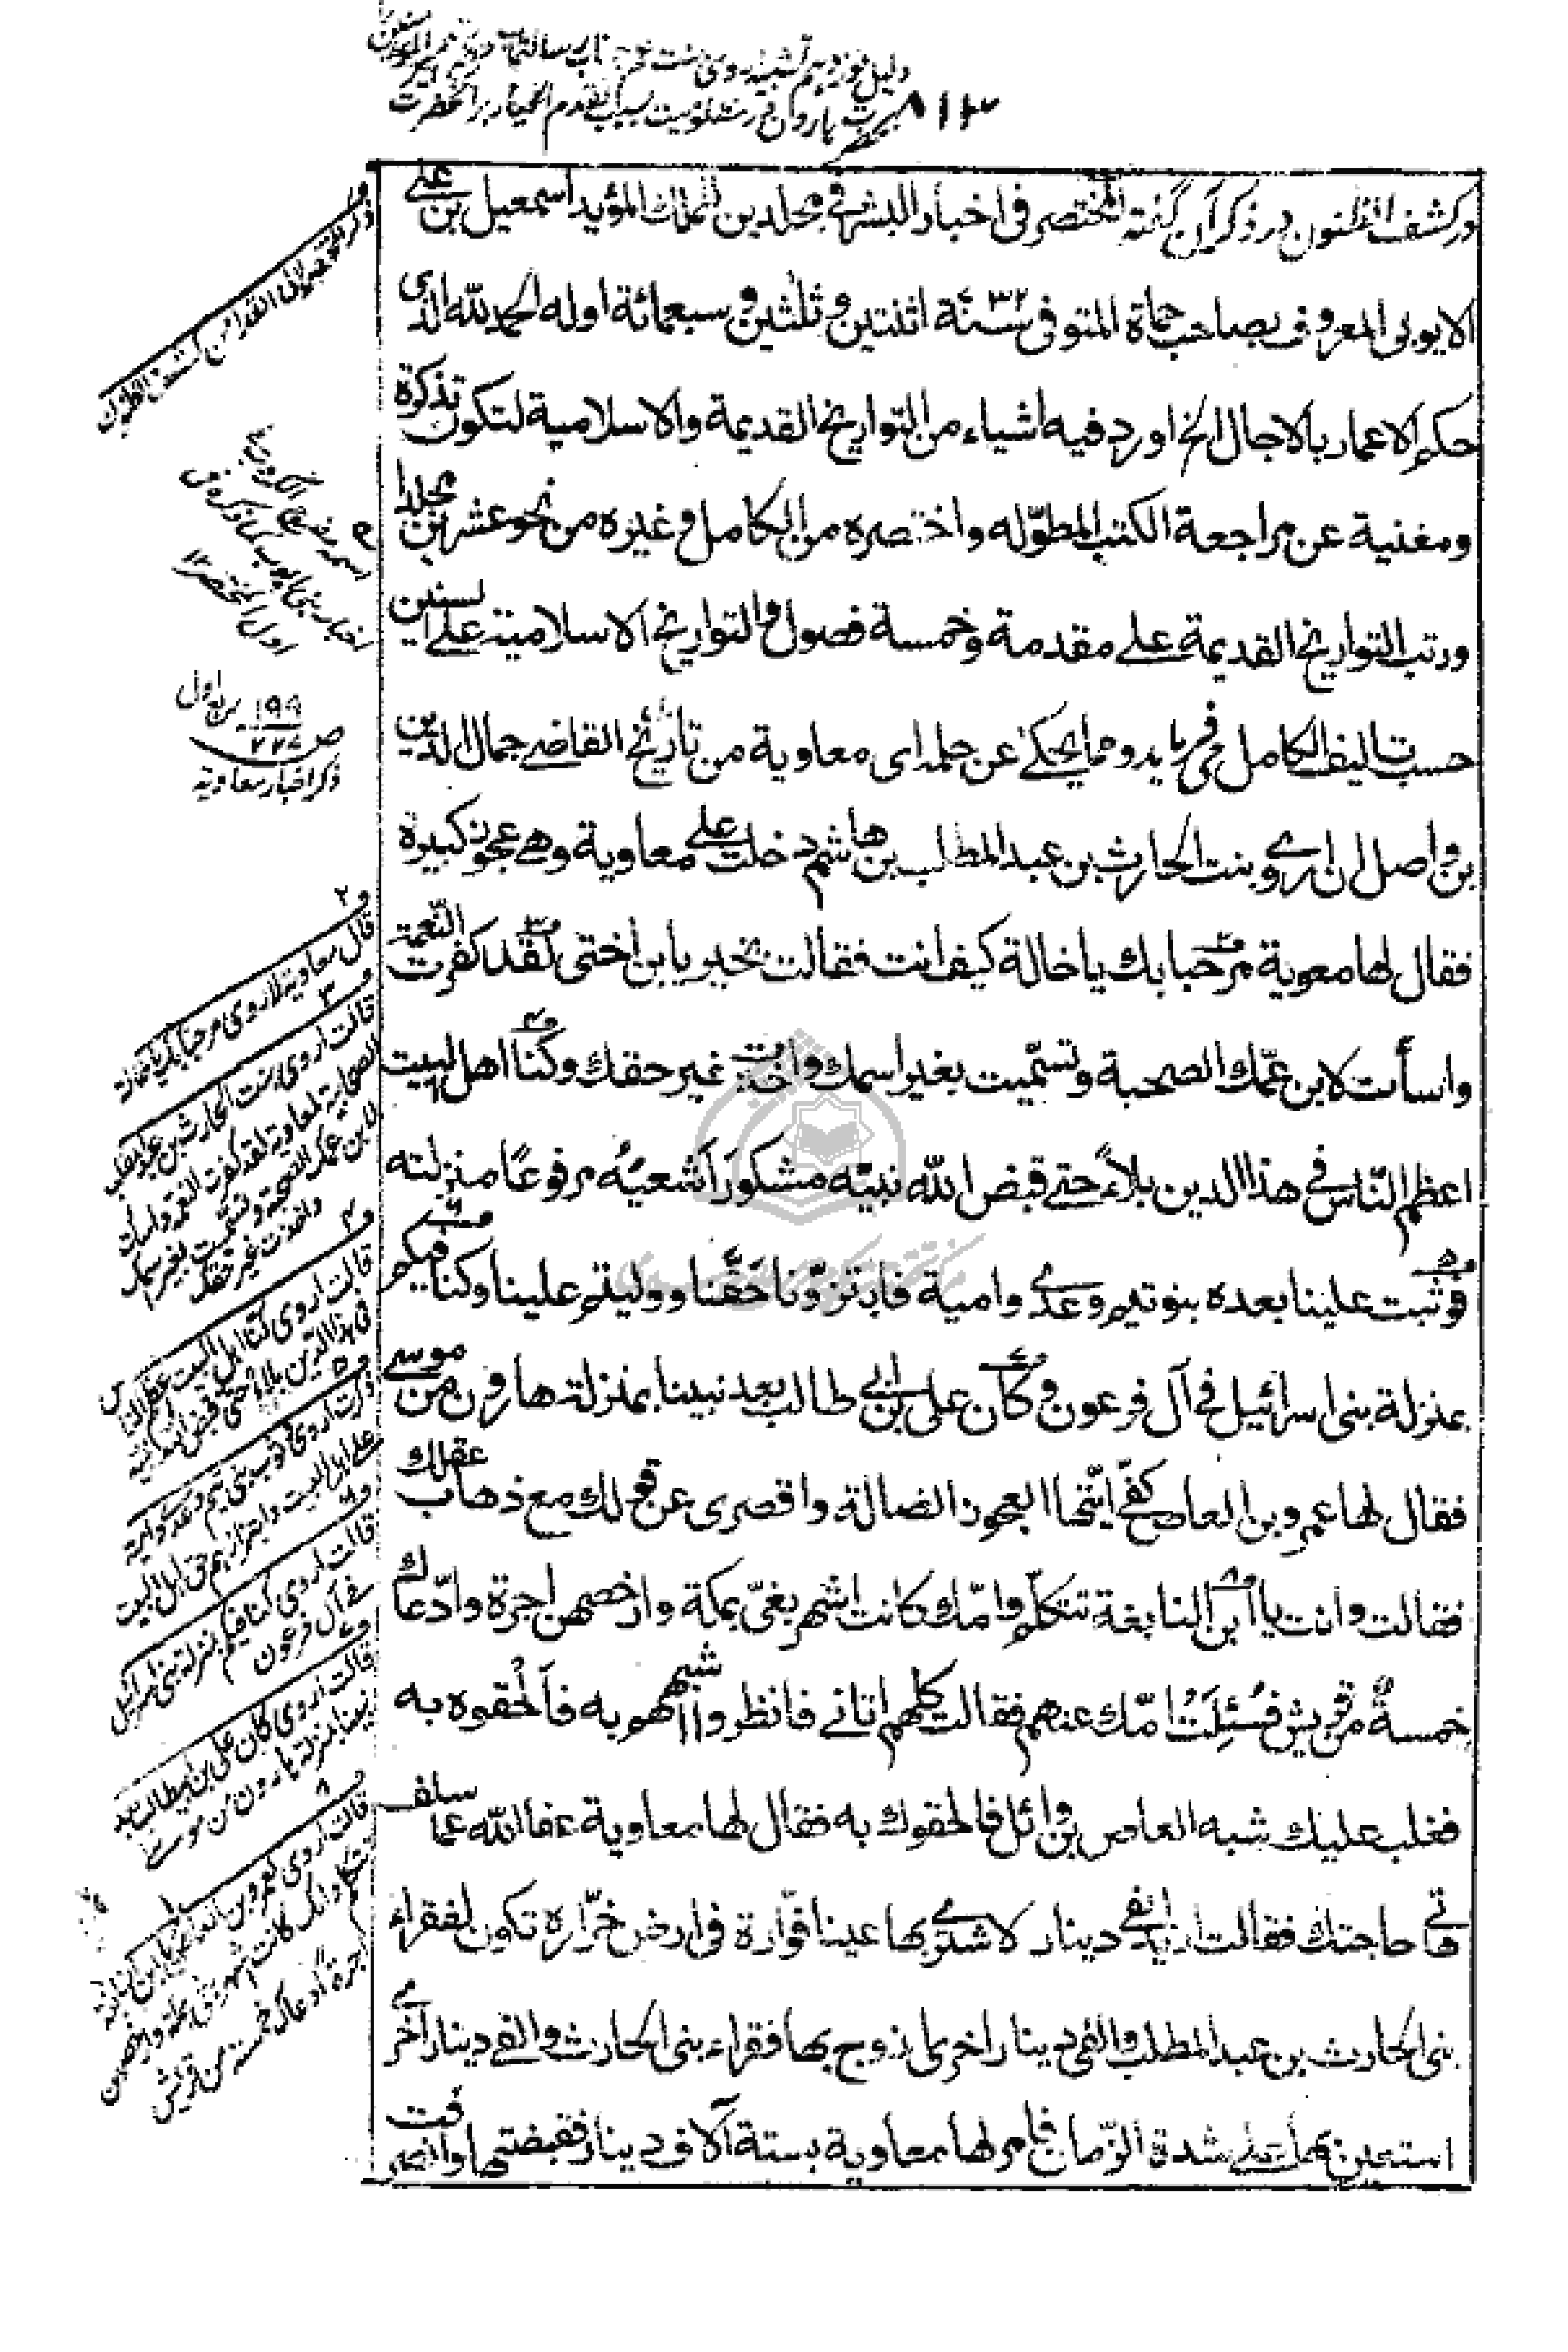 دلیل نوزدهم تشبیه اروی بنت جناب رسالتمآب
۸۱۳ بحضرت هارون در مظلومیت بسبب تقدم اغیار بر آنحضرت
ودر کشف الظنون در ذکر آن گفته المختصر فی اخبار البشر فی مجلدین للملك المؤید اسمعیل بن علی
الایوبی المعروف بصاحب حماة المتوفی سنة ۷۳۲ اثنتین وثلثین وسبعمائة اوله الحمد لله الذی
حکم الاعمار بالاجال الخ اورد فیه اشیاء من التواریخ القدیمة والاسلامیة لتکون تذکرة
ومغنیة عن مراجعة الکتب المطوّله واختصره من الکامل وغیره من نحو عشرین مجلدا
ورتب التواریخ القدیمة علی مقدمة وخمسة فصول والتواریخ الاسلامیة علی السنین
حسب تالیف الکامل می فرماید ومما یحکی عن حلمه ای معاویة من تاریخ القاضی جمال الدین
بن واصل ان اروی بنت الحارث بن عبد المطلب بن هاشم دخلت علی معاویة وهی عجوز کبیرة
فقال لها معویة مرحبا بك یا خالة کیف انت فقالت بخیر یا بن اختی لقد کفرت النّعمة
واسأت لابن عمّك الصحبة وتسمّیت بغیر اسمك واخذت غیر حقك وکنّا اهل البیت
اعظم النّاس فی هذا الدین بلاءً حتی قبض الله نبیّه مشکورًا سعیُه مرفوعًا منزلته
فوثبت علینا بعده بنو تیم وعدی وامیة فابتزّونا حَقَّنا وولیتم علینا وکنا فیکم
بمنزلة بنی اسرائیل فی آل فرعون وکان علی بن ابی طالب بعد نبینا بمنزلة هارون من موسی
فقال لها عمرو بن العاص کفّی ایّتها العجوز الضالة واقصری عن قولك مع ذهاب عقلك
فقالت وانت یا ابن النابغة تتکلّم وامّك کانت اشهر بغیّ بمکة وارخصهن اجرة وادّعاك
خمسةٌ من قریش فسُئِلَت امّك عنهم فقالت کلهم اتانی فانظروا اشبههم به فاَلْحقوه به
فغلب علیك شبه العاص بن وائل فالحقوك به فقال لها معاویة عفا الله عما سلف
هاتی حاجتك فقالت ارید الفی دینار لاشتری بها عینا فوّارة فی ارض خرّارة تکون لفقراء
بنی الحارث بن عبد المطلب والفی دینار اخری ازوج بها فقراء بنی الحارث والفی دینار اخری
استعین بها علی شدة الزّمان فامر لها معاویة بستة آلاف دینار فقبضتها وانصرفت
و۱
ذکر المختصر لابی الفداء من کشف الظنون
اول المختصر ۱۲
ص ۱۹۹ ربع اول
ذکر اخبار معاویة
و۲
قال معاویة لاروی مرحبا بك یا خالة
و۳
قالت اروی بنت الحارث بن عبد المطلب
الصحابیة لمعاویة لقد کفرت النعمة واسأت
لابن عمك الصحبة وتسمّیت بغیر اسمك
واخذت غیر حقك
و۴
قالت اروی کنّا اهل البیت اعظم الناس
فی هذا الدین بلاءً حتی قبض الله نبیه
و۵
ذکرت اروی وثوب بنی تیم وعدی وامیة
علی اهل البیت وابتزازهم حق اهل البیت
و۶
قالت اروی کنا فیکم بمنزلة بنی اسرائیل
فی آل فرعون
و۷
قالت اروی کان علی بن ابیطالب بعد
نبینا بمنزلة هارون من موسی
و۸
قالت اروی لعمرو بن العاص یا ابن النابغة
تتکلم وامك کانت اشهر بغی بمکة وارخصهن
اجرة وادعاك خمسة من قریش